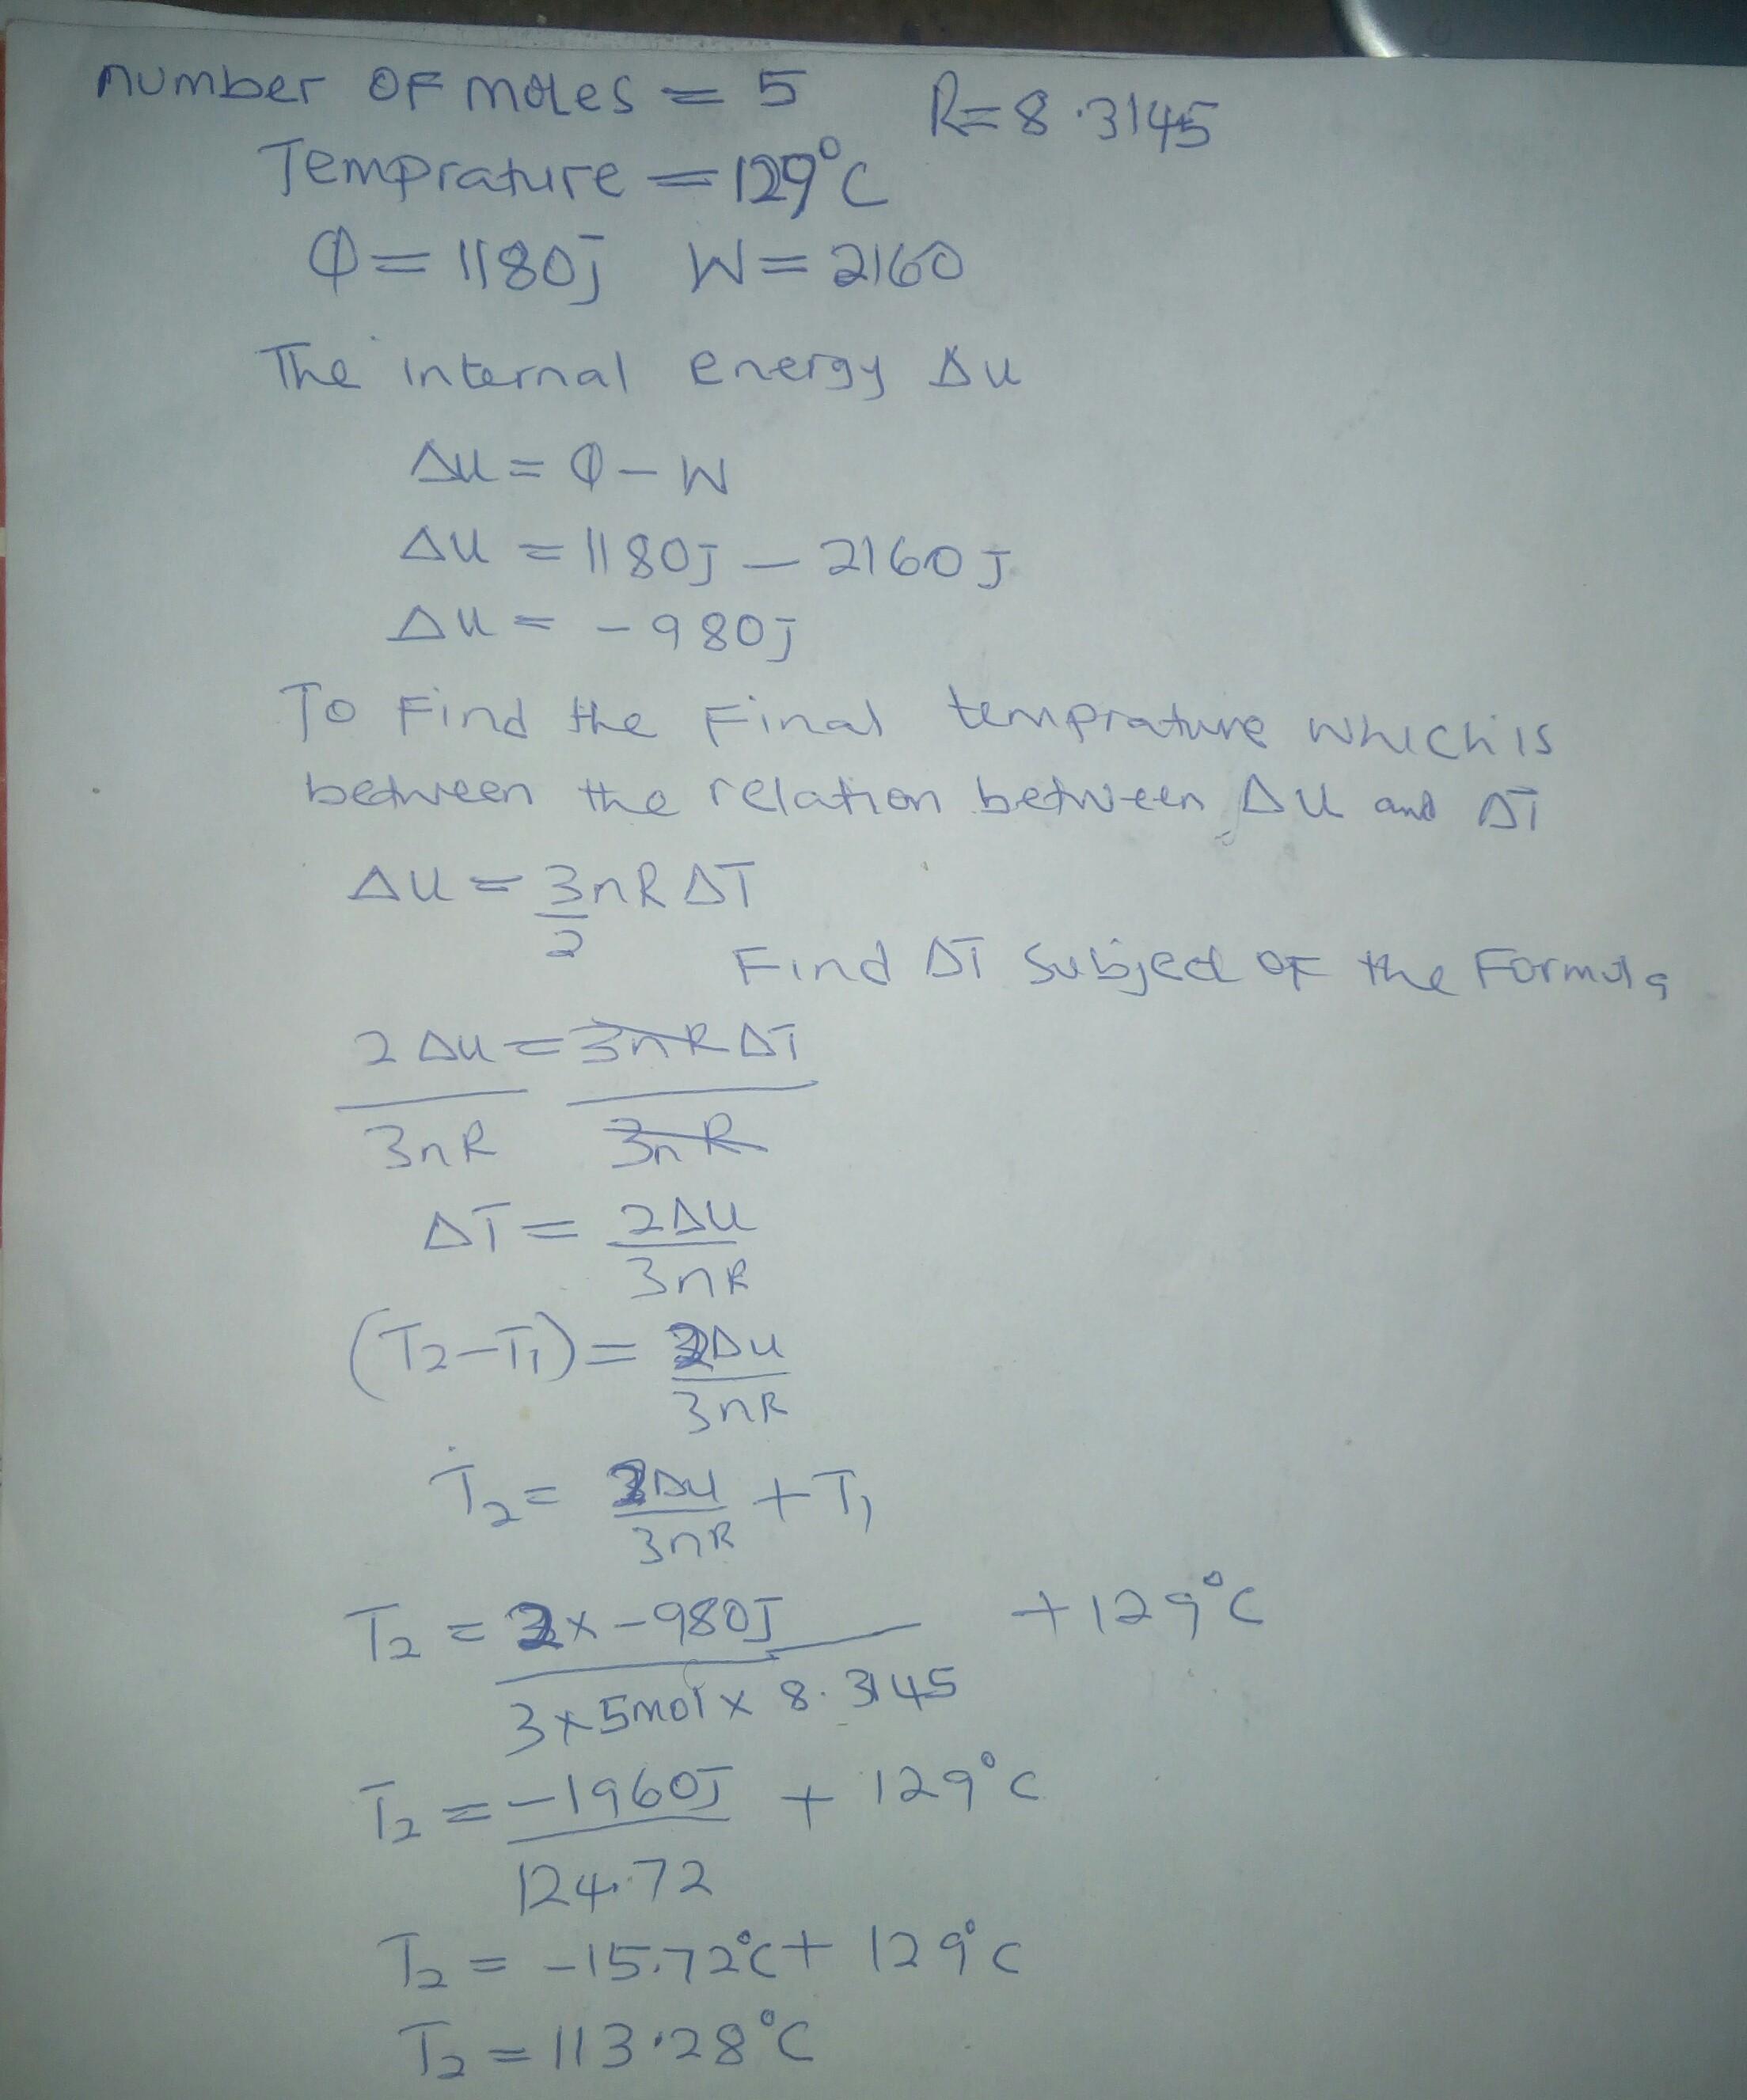 number OF moles = 5 R=8.3145
Temprature = 129°C
Q = 1180J W = 2160
The internal energy Δu
Δu = Q - W
Δu = 1180J - 2160J
Δu = -980J
To Find the Final temprature which is
between the relation between Δu and ΔT
Δu = 3/2 nRΔT
Find ΔT subject of the Formula
2Δu/3nR = 3nRΔT/3nR
ΔT = 2Δu/3nR
(T2-T1) = 2Δu/3nR
T2 = 2Δu/3nR + T1
T2 = 2x-980J/3x5molx8.3145 + 129°C
T2 = -1960J/124.72 + 129°C
T2 = -15.72°C + 129°C
T2 = 113.28°C